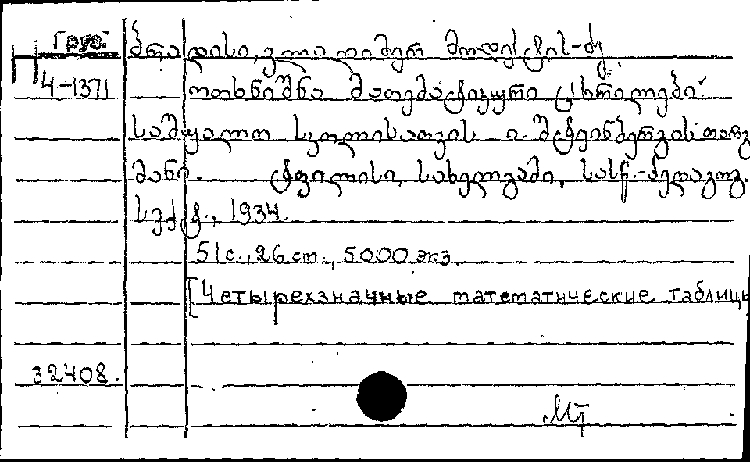 Груз.
П
4-1371
ბრადისი, ვლადიმერ მოდესტის-ძე
ოთხნიშნა მათემატიკური ცხრილები.
საშუალო სკოლისათვის. ი. შტეინბერგის თარგ
მანი. ტფილისი, სახელგამი, სასწ.-პედაგოგ.
სექტ., 1934.
51 с., 26 см., 5000 экз.
[Четырехзначные математические таблицы
32408.